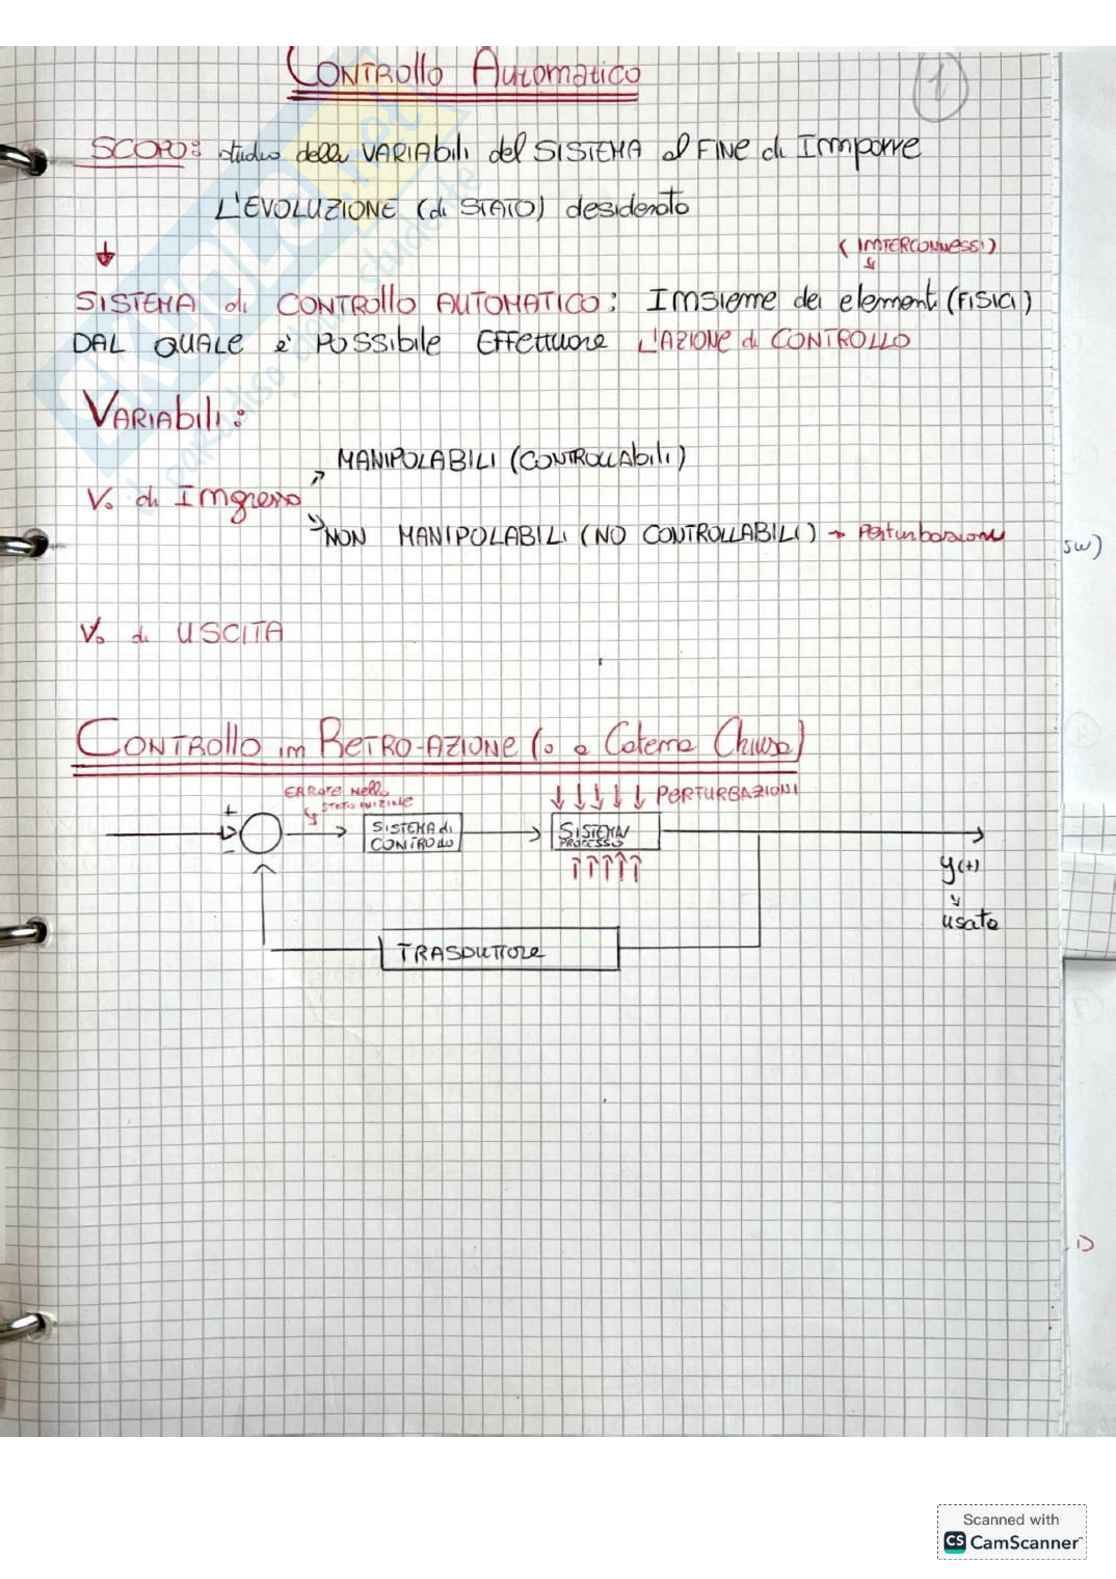 CONTROllO AUTOMATICO
1
SCOPO: studio delle VARIABILI del SISTEMA al FINE di Imporre
L'EVOLUZIONE (di STATO) desiderato
(INTERCONNESSI)
SISTEMA di CONTROllO AUTOMATICO: Insieme dei elementi (FISICI)
DAL QUALE è POSSIBILE Effettuare L'AZIONE di CONTROLLO
VARIAbili:
MANIPOLABILI (CONTROLLAbili)
V. di Ingresso
NON MANIPOLABILI (NO CONTROLLABILI) → Perturbazioni
sw)
V. di USCITA
CONTROllO in RETRO-AZIONE (o a Catena Chiusa)
ERRORE Nello
STATO INIZIALE
PERTURBAZIONI
+
-
SISTEMA di
CONTROLLO
SISTEMA
PROCESSO
y(t)
usata
TRASDUTTORE
Scanned with
CS CamScanner